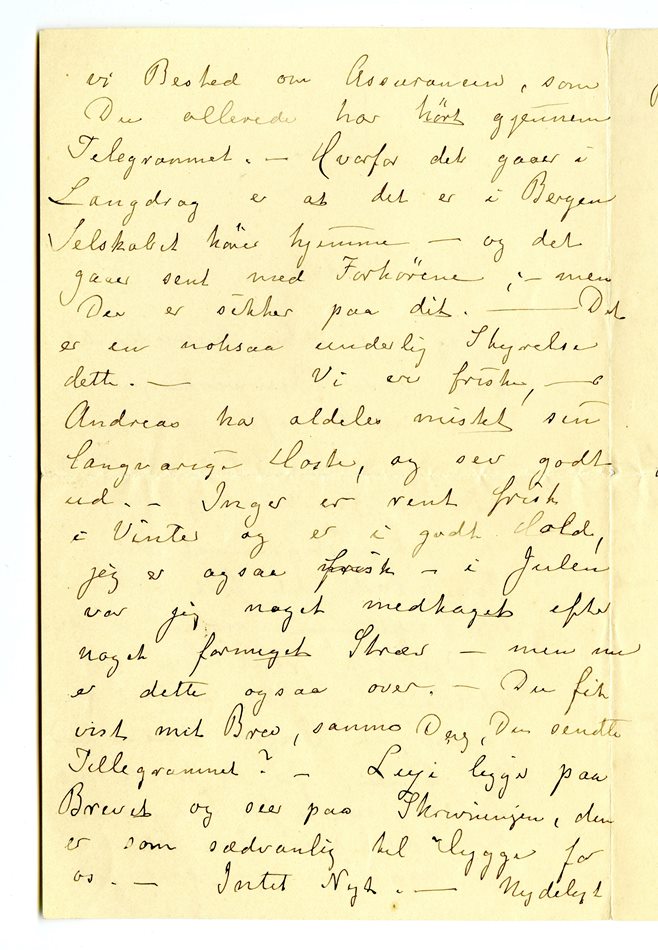 vi Besked om Assurancen, som
Du allerede har hört gjennem
Telegrammet. — Hvorfor det gaaer i
Langdrag er at det er i Bergen
Selskabet hörer hjemme — og det
gaaer sent med Forhörene ; — men
Du er sikker paa dit. — Det
er en noksaa underlig Styrelse
dette. — Vi er friske, —
Andreas har aldeles mistet sin
langvarige Hoste, og ser godt
ud. — Inger er rent frisk
i Vinter og er i godt Hold,
jeg er ogsaa frisk — i Julen
var jeg noget medtaget efter
noget formeget Stræv — men nu
er dette ogsaa over. — Du fik
vist mit Brev, samme Dag, Du sendte
Tellegrammet? — ligger paa
Brevet og seer paa Skrivningen, den
er som sædvanlig til Hygge for
os. — Intet Nyt. — Nydeligt